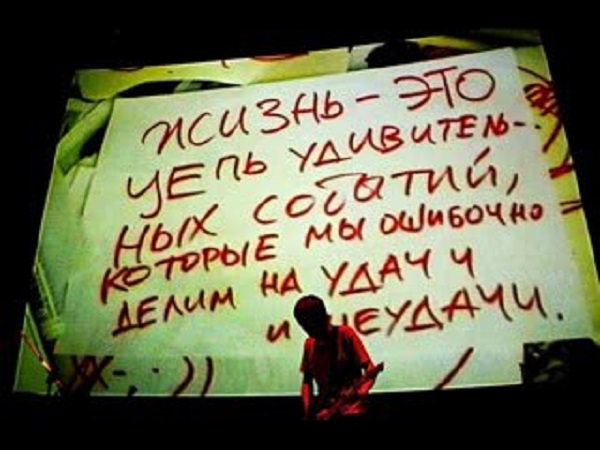 ЖИЗНЬ – ЭТО
ЦЕПЬ УДИВИТЕЛЬ-
НЫХ СОБЫТИЙ,
КОТОРЫЕ МЫ ОШИБОЧНО
ДЕЛИМ НА УДАЧУ
И НЕУДАЧИ.